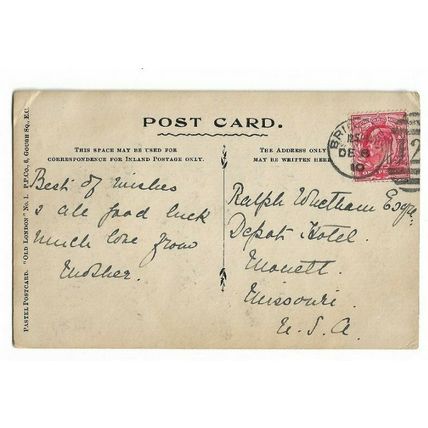 POST CARD.
THIS SPACE MAY BE USED FOR
CORRESPONDENCE FOR INLAND POSTAGE ONLY.
THE ADDRESS ONLY
MAY BE WRITTEN HERE
Best of wishes
& all good luck
much love from
Mother.
Ralph Whetham Esqre
Depot Hotel.
Monett.
Missouri.
U.S.A.
PASTEL POSTCARD. "OLD LONDON" No. 1. P.P.CO., 6, GOUGH SQ., E.C.
BRI
DE 8
10
2